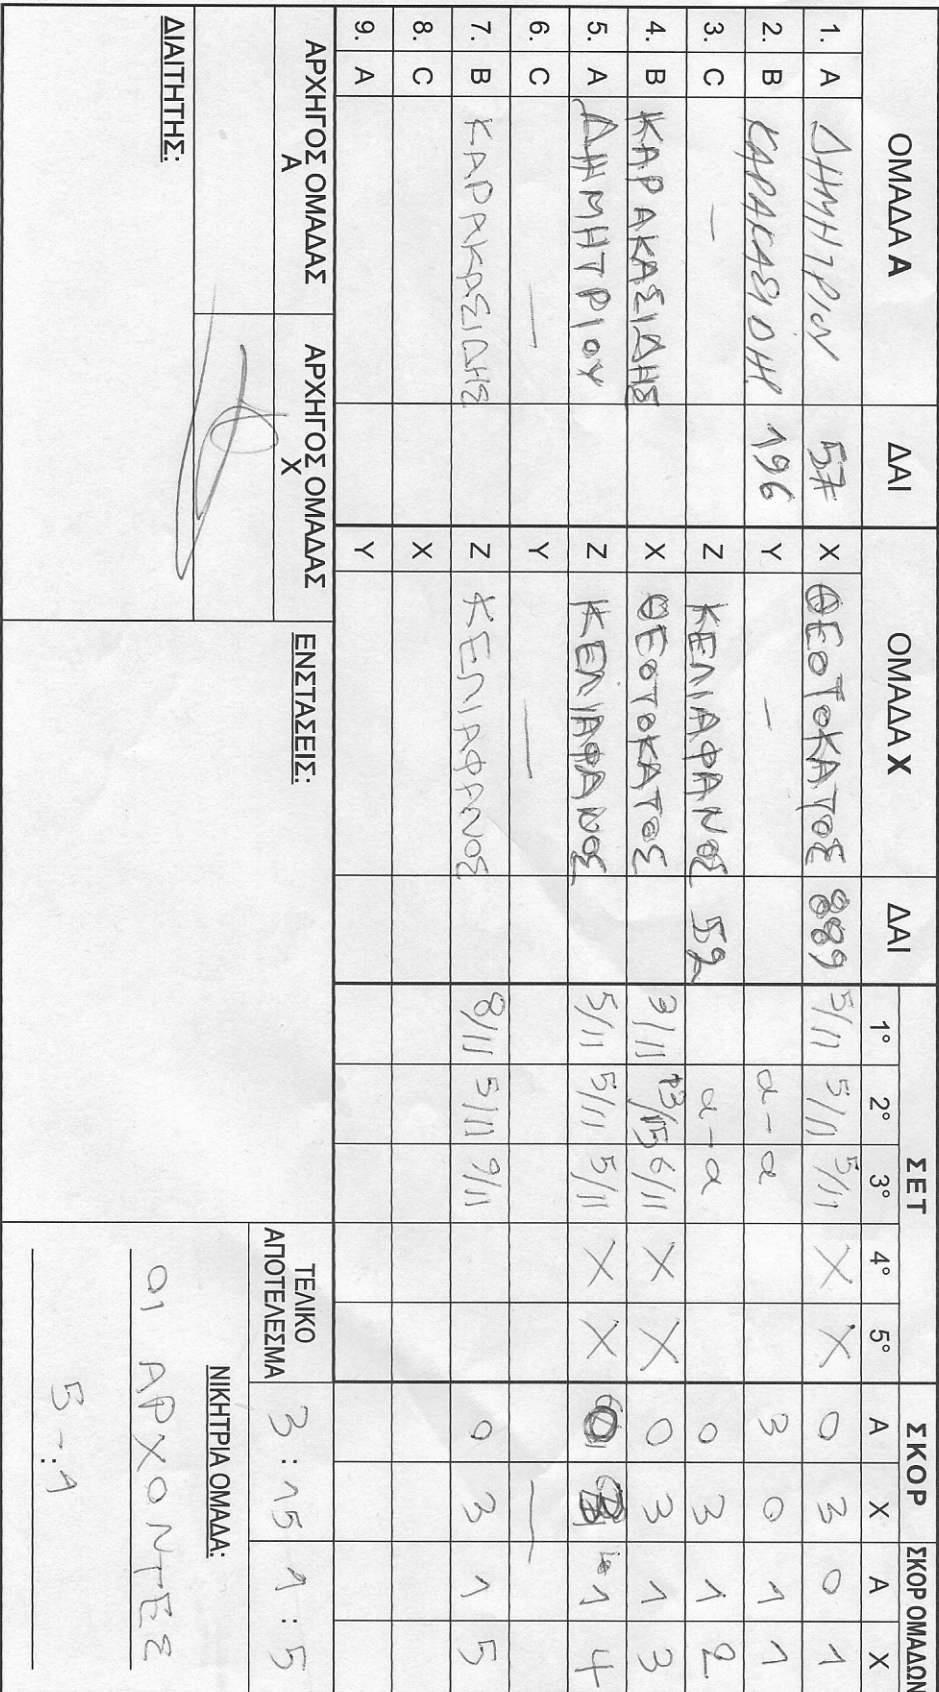 ΟΜΑΔΑ Α ΔΑΙ ΟΜΑΔΑ Χ ΔΑΙ ΣΕΤ ΣΚΟΡ ΣΚΟΡ ΟΜΑΔΩΝ
1° 2° 3° 4° 5° Α Χ Α Χ
1. A ΔΗΜΗΤΡΙΟΥ 57 X ΘΕΟΤΟΚΑΤΟΣ 889 5/11 5/11 5/11 X X 0 3 0 1
2. B ΚΑΡΑΚΑΣΙΔΗ 196 Y — α-α 3 0 1 1
3. C — Z ΚΕΛΙΑΦΑΝΟΣ 52 α-α 0 3 1 2
4. B ΚΑΡΑΚΑΣΙΔΗΣ X ΘΕΟΤΟΚΑΤΟΣ 3/11 13/15 6/11 X X 0 3 1 3
5. A ΔΗΜΗΤΡΙΟΥ Z ΚΕΛΙΑΦΑΝΟΣ 5/11 5/11 5/11 X X 0 3 1 4
6. C — Y — —
7. B ΚΑΡΑΚΑΣΙΔΗΣ Z ΚΕΛΙΑΦΑΝΟΣ 8/11 5/11 9/11 0 3 1 5
8. C X
9. A Y
ΑΡΧΗΓΟΣ ΟΜΑΔΑΣ Α ΑΡΧΗΓΟΣ ΟΜΑΔΑΣ Χ
ΔΙΑΙΤΗΤΗΣ:
ΕΝΣΤΑΣΕΙΣ:
ΤΕΛΙΚΟ ΑΠΟΤΕΛΕΣΜΑ 3 : 15 1 : 5
ΝΙΚΗΤΡΙΑ ΟΜΑΔΑ:
ΟΙ ΑΡΧΟΝΤΕΣ
5 - : 1